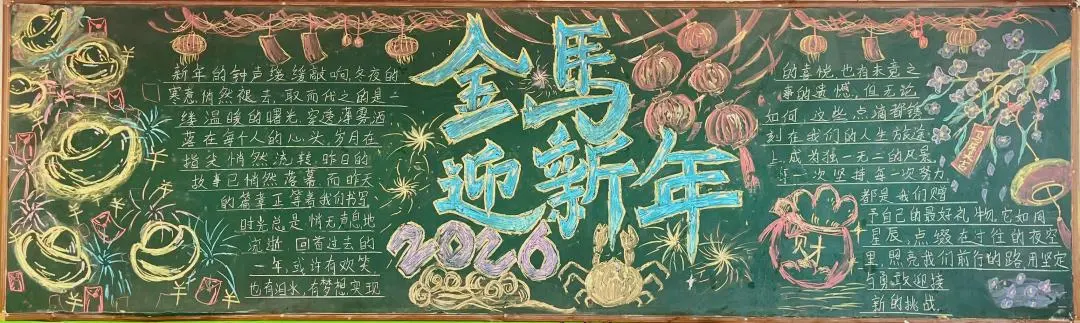 新年的钟声缓缓敲响,冬夜的
寒意悄然褪去,取而代之的是一
缕温暖的曙光,穿透薄雾,洒
落在每个人的心头,岁月在
指尖悄然流转,昨日的
故事已悄然落幕,而昨天
的篇章正等着我们书写
时光总是悄无声息地
流逝,回首过去的
一年,或许有欢笑,
也有泪水,有梦想实现
金马
迎新年
2026
的喜悦,也有未竟之
事的遗憾,但无论
如何,这些点滴都镌
刻在我们的人生旅途
上,成为独一无二的风景,
每一次坚持每一次努力
都是我们赠
予自己的最好礼物,它如同
星辰,点缀在过往的夜空
里,照亮我们前行的路,用坚定
与勇敢迎接
新的挑战。
财